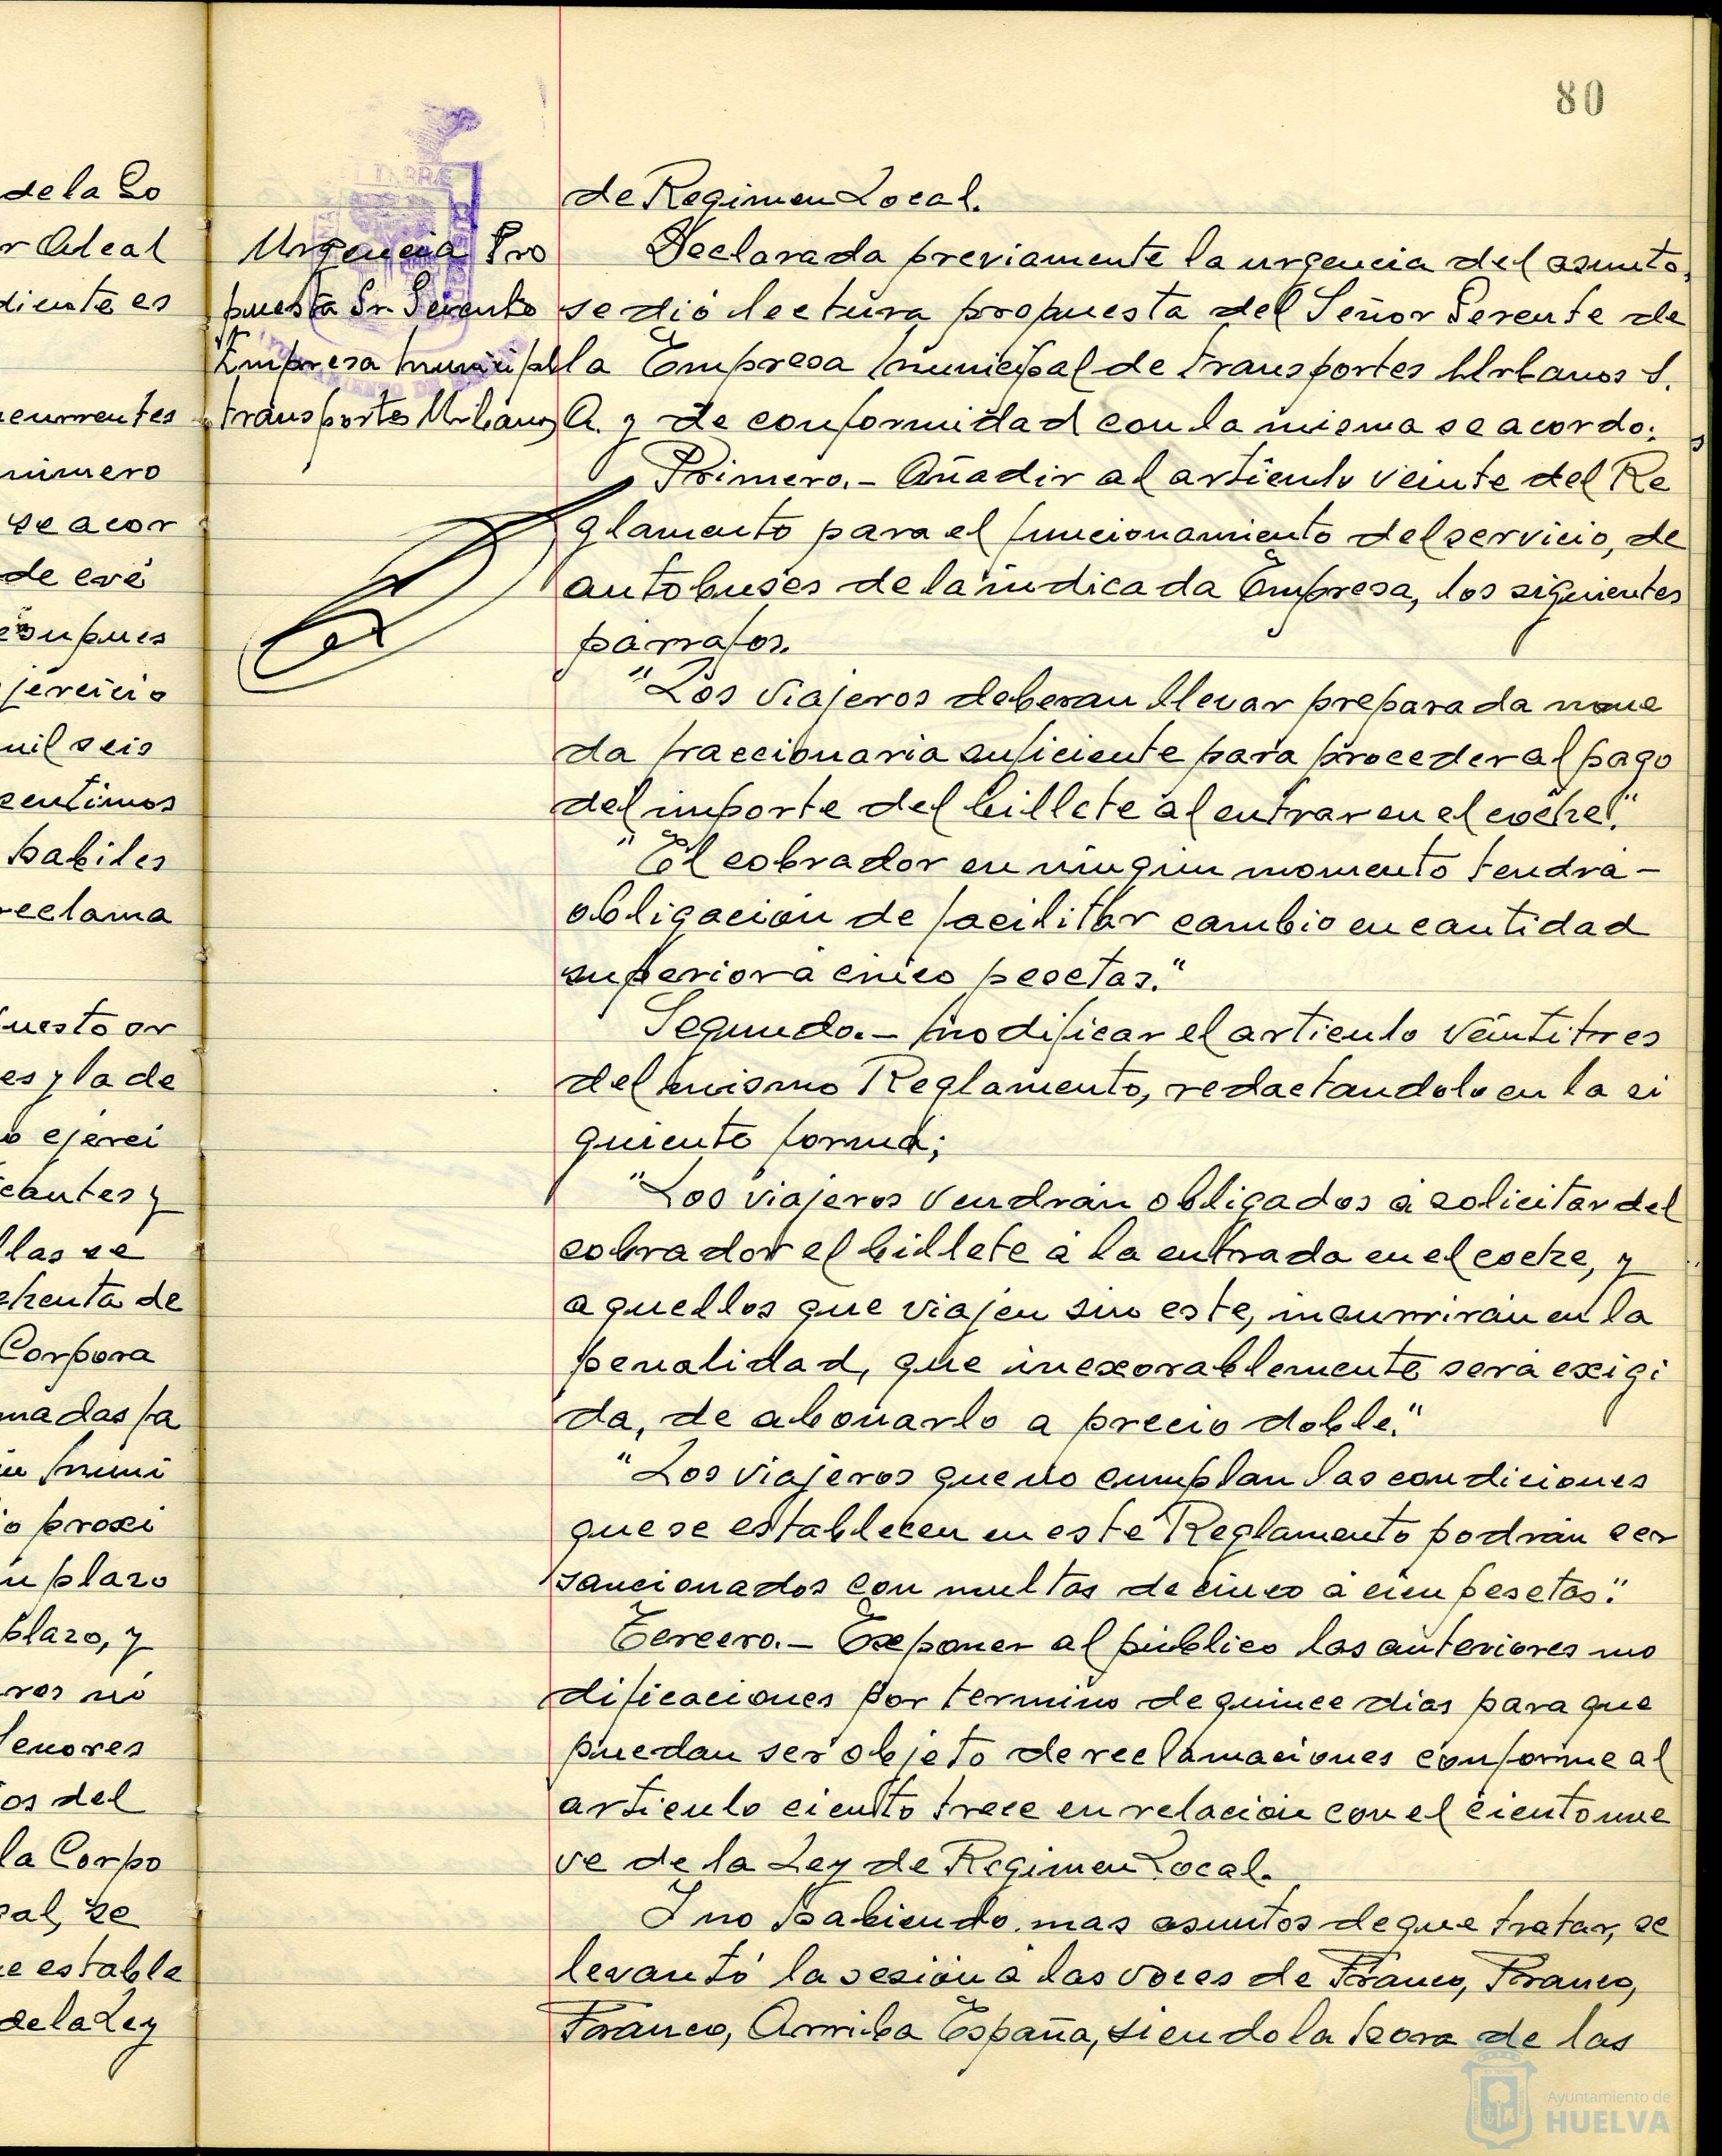 80
de la Co
r Alcal
diente es
currentes
número
se acor
de eve
esupues
jercicio
mil seis
centimos
habiles
reclama
uesto or
es y la de
o ejerci
cantes y
llas se
chenta de
Corpora
madas fa
muni
o proxi
n plazo
plazo, y
ros no
Senores
os del
la Corpo
al, se
e estable
de la Ley
Urgencia Pro
puesta Sr. Gerente
Empresa Municipal
transportes Urbanos
de Regimen Local.
Declarada previamente la urgencia del asunto,
se dió lectura propuesta del Señor Gerente de
la Empresa Municipal de transportes Urbanos S.
A. y de conformidad con la misma se acordo:
Primero.- Añadir al articulo veinte del Re
glamento para el funcionamiento del servicio, de
autobuses de la indicada Empresa, los siguientes
parrafos.
"Los viajeros deberan llevar preparada mone
da fraccionaria suficiente para proceder al pago
del importe del billete al entrar en el coche."
"El cobrador en ningun momento tendrá-
obligación de facilitar cambio en cantidad
superior a cinco pesetas."
Segundo.- Modificar el articulo veintitres
del mismo Reglamento, redactandolo en la si
guiente forma;
"Los viajeros vendrán obligados á solicitar del
cobrador el billete a la entrada en el coche, y
aquellos que viajen sin este, incurrirán en la
penalidad, que inexorablemente será exigi
da, de abonarlo a precio doble."
"Los viajeros que no cumplan las condiciones
que se establecen en este Reglamento podrán ser
sancionados con multas de cinco á cien pesetas."
Tercero.- Exponer al público las anteriores mo
dificaciones por termino de quince dias para que
puedan ser objeto de reclamaciones conforme al
articulo ciento trece en relación con el ciento nue
ve de la Ley de Regimen Local.
Y no habiendo mas asuntos de que tratar, se
levantó la sesión á las voces de Franco, Franco,
Franco, Arriba España, siendo la hora de las
Ayuntamiento de
HUELVA